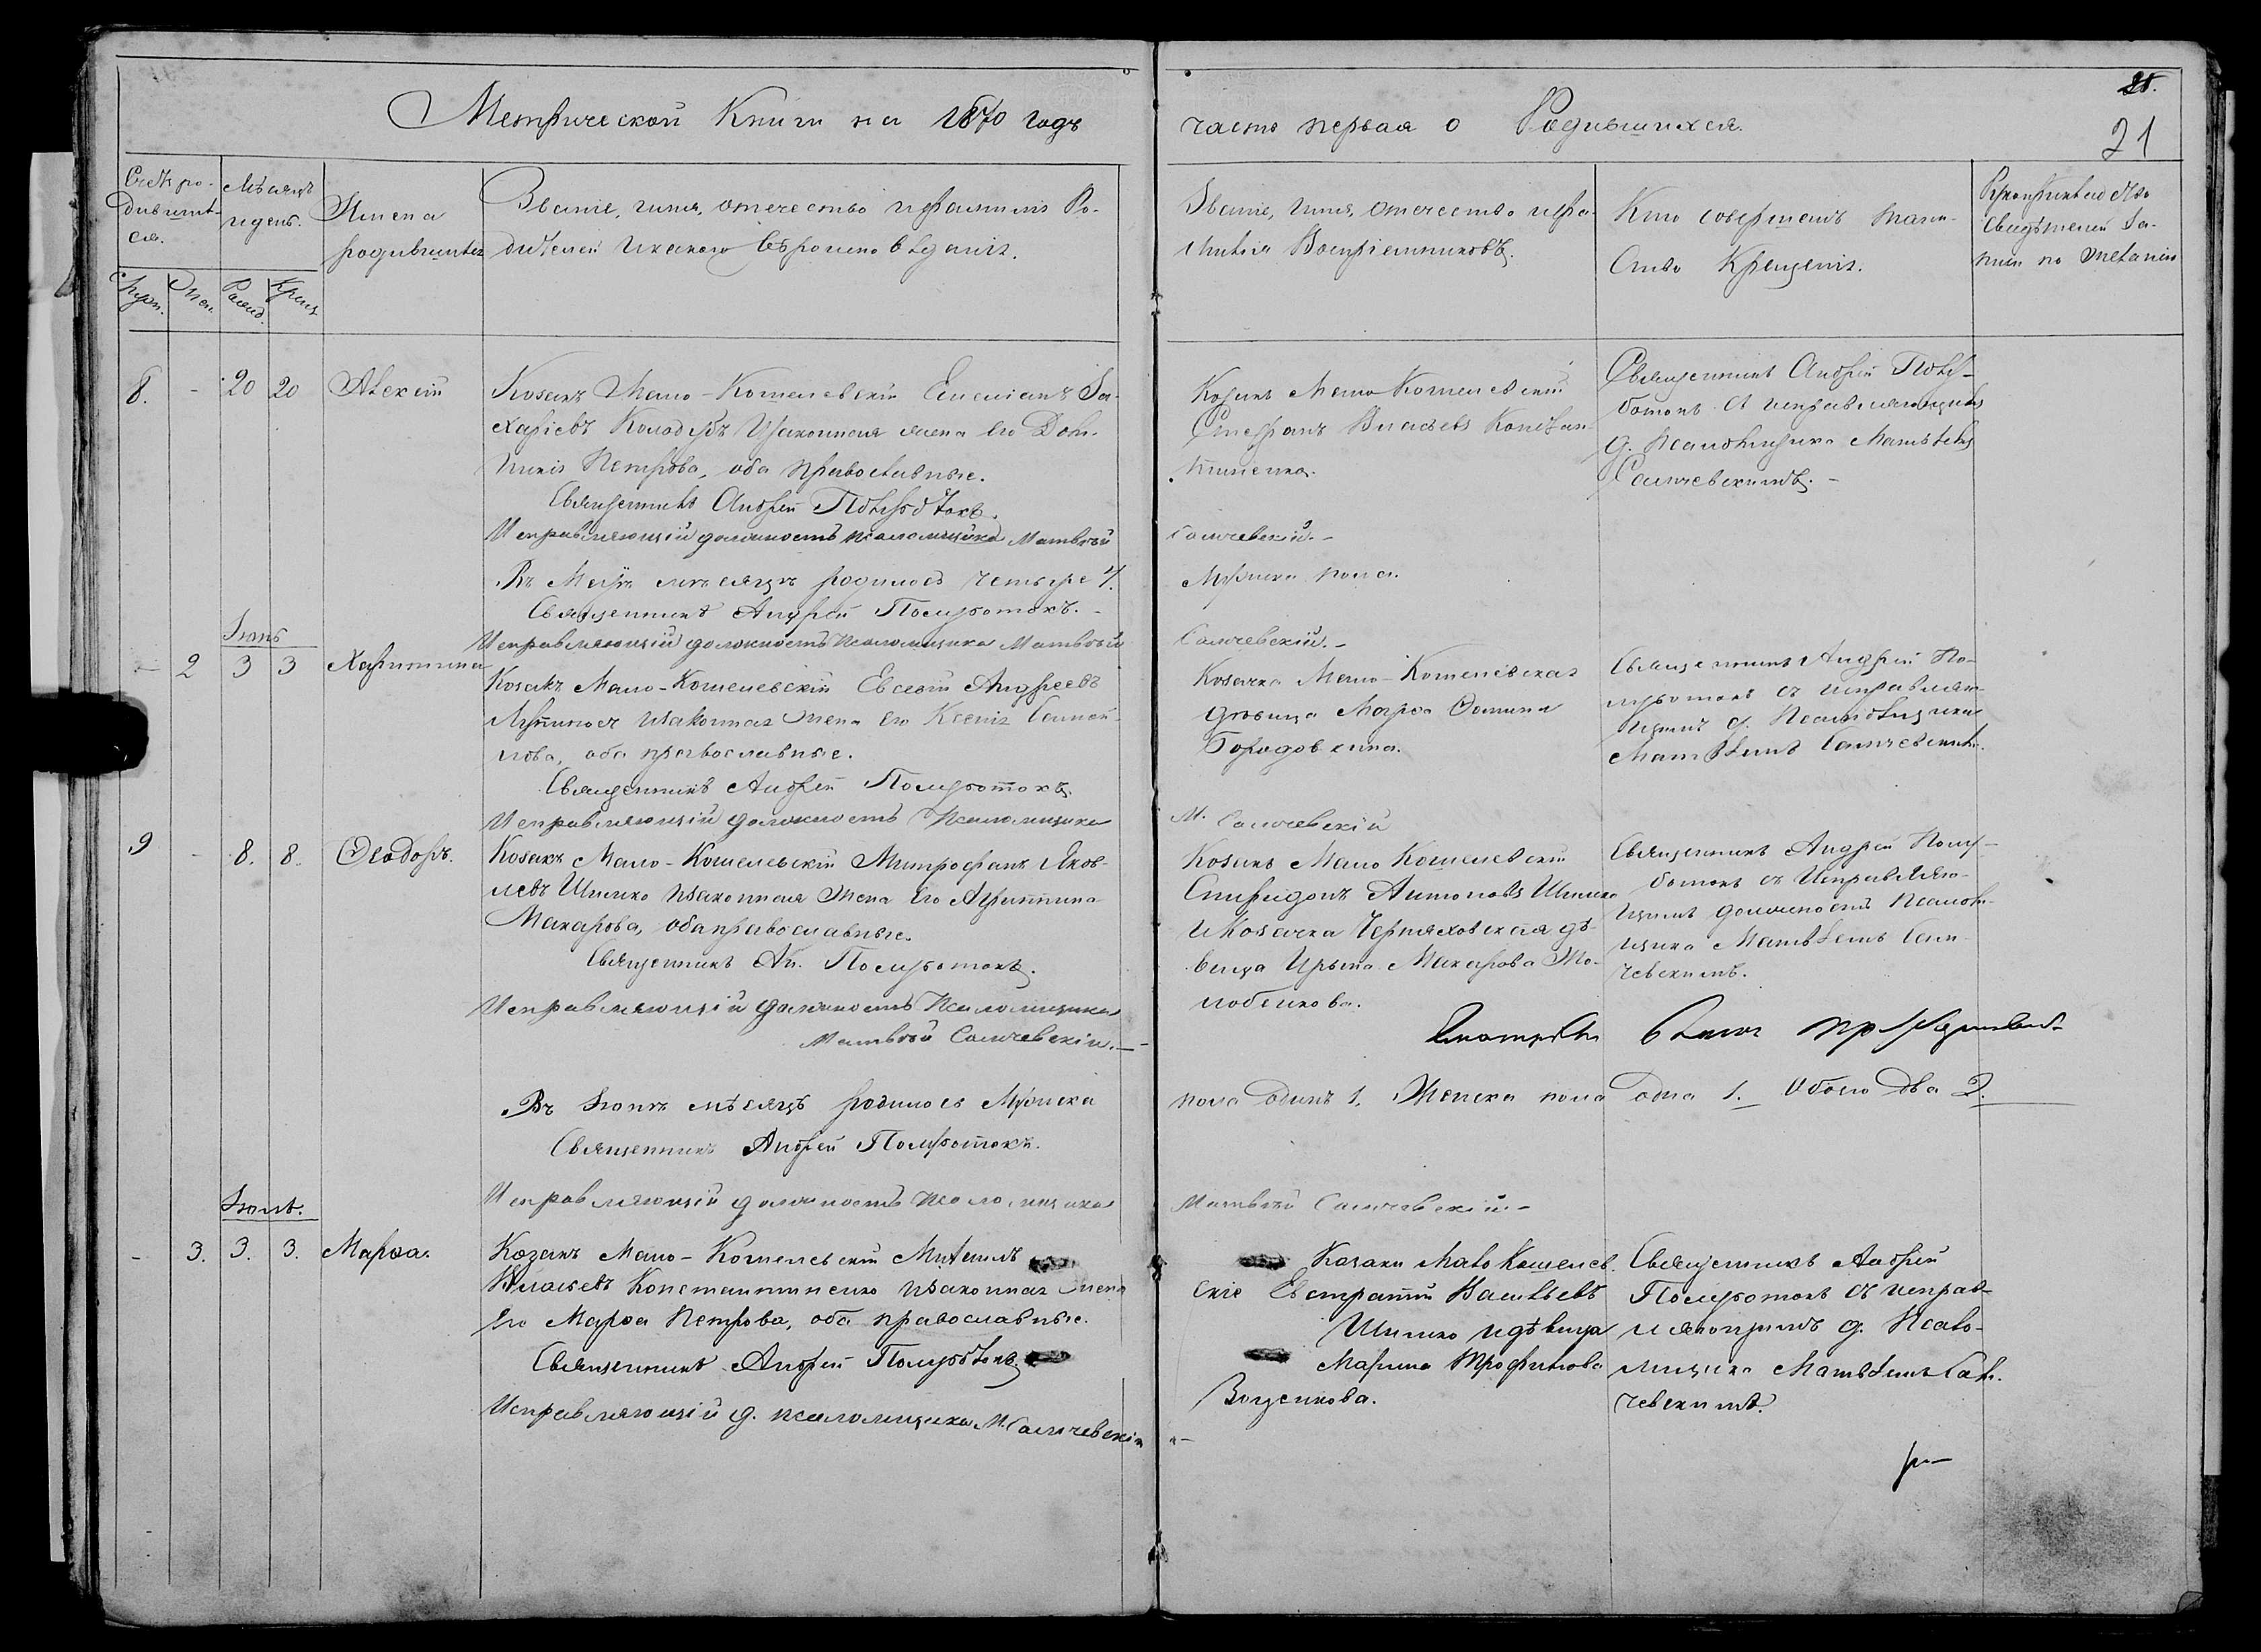 Метрической Книги на 1870 годъ
часть первая о Родившихся.
21
Счетъ ро-
дившит-
ся.
Мѣсяцъ
и день.
Имена
родившихся
Званіе, имя, отечество и фамилія Ро-
дителей и какого вѣроисповѣданія.
Званіе, имя, отечество и фа-
милія Воспріемниковъ.
Кто совершалъ таин-
ство Крещенія.
Рукоприкладство
свидѣтелей за-
писи по желанію
Муж. Жен. Рожд. Крещ.
8. - 20 20 Алексій
Козакъ Мало-Кошелевскій Емеліанъ За-
харіевъ и законная жена его Дом-
никія Петрова, оба православные.
Священникъ Андрей Полуботокъ.
Исправляющій должность псаломщика Матвѣй
Козакъ Мало Кошелевскій
Стефанъ Власьевъ Констан-
тиненко.
Священникъ Андрей Полу-
ботокъ съ исправляющимъ
д. Псаломщика Матвѣемъ
Самчевскимъ. -
Самчевскій. -
Въ Маѣ мѣсяцѣ родилось четыре 4.
Мужска пола.
Священникъ Андрей Полуботокъ. -
Исправляющій должность псаломщика Матвѣй
Самчевскій. -
Іюнь
- 2 3 3 Харитина
Козакъ Мало-Кошелевскій Евсевій Андреевъ
и законная жена его Ксенія Самой-
лова, оба православные.
Священникъ Андрей Полуботокъ.
Исправляющій должность Псаломщика
Козачка Мало-Кошелевская
дѣвица Марѳа Ѳомина
Бородовкина.
Священникъ Андрей По-
луботокъ съ исправляю-
щимъ д. Псаломщика
Матвѣемъ Самчевскимъ.
М. Самчевскій
9 - 8. 8. Ѳеодоръ.
Козакъ Мало-Кошелевскій Митрофанъ Яков-
левъ Шишко и законная жена его Агриппина
Макарова, оба православные.
Священникъ Ан. Полуботокъ.
Исправляющій должность Псаломщика
Матвѣй Самчевскій. -
Козакъ Мало Кошелевскій
Спиридонъ Антоновъ Шишко
и Козачка Черняховская дѣ-
вица Ирына Макарова
Священникъ Андрей Полу-
ботокъ съ Исправляю-
щимъ должность Псалом-
щика Матвѣемъ Сам-
чевскимъ.
Въ Іюнѣ мѣсяцѣ родилось Мужска
пола одинъ 1. Женска пола одна 1. Обоего два 2.
Священникъ Андрей Полуботокъ.
Исправляющій должность псаломщика
Матвѣй Самчевскій. -
Іюль.
- 3. 3. 3. Марѳа.
Козакъ Мало-Кошелевскій Михаилъ
Власьевъ Константиненко и законная жена
его Марѳа Петрова, оба православные.
Священникъ Андрей Полуботокъ
Исправляющій д. псаломщика М. Самчевскій
Козаки Мало Кошелев-
скіе Евстратій Васильевъ
Шишко и дѣвица
Марина Трофимова
Воценкова.
Священникъ Андрей
Полуботокъ съ исправ-
ляющимъ д. Псало-
мщика Матвѣемъ Сам-
чевскимъ.